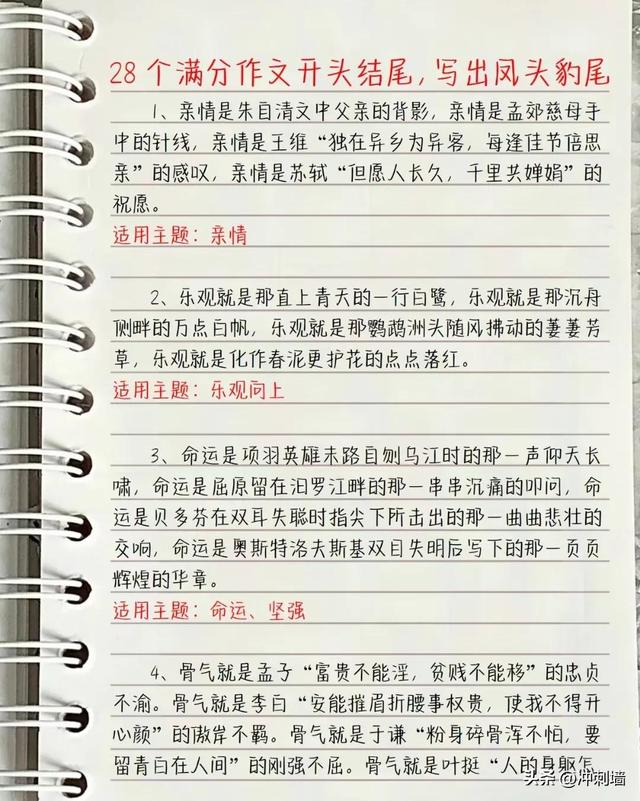 28个满分作文开头结尾,写出凤头豹尾
1、亲情是朱自清文中父亲的背影，亲情是孟郊慈母手
中的针线，亲情是王维“独在异乡为异客，每逢佳节倍思
亲”的感叹，亲情是苏轼“但愿人长久，千里共婵娟”的
祝愿。
适用主题：亲情
2、乐观就是那直上青天的一行白鹭，乐观就是那沉舟
侧畔的万点白帆，乐观就是那鹦鹉洲头随风拂动的萋萋芳
草，乐观就是化作春泥更护花的点点落红。
适用主题：乐观向上
3、命运是项羽英雄末路自刎乌江时的那一声仰天长
啸，命运是屈原留在汨罗江畔的那一串串沉痛的叩问，命
运是贝多芬在双耳失聪时指尖下所击出的那一曲曲悲壮的
交响，命运是奥斯特洛夫斯基双目失明后写下的那一页页
辉煌的华章。
适用主题：命运、坚强
4、骨气就是孟子“富贵不能淫，贫贱不能移”的忠贞
不渝。骨气就是李白“安能摧眉折腰事权贵，使我不得开
心颜”的傲岸不羁。骨气就是于谦“粉身碎骨浑不怕，要
留青白在人间”的刚强不屈。骨气就是叶挺“人的身躯怎
头条 @冲刺墙